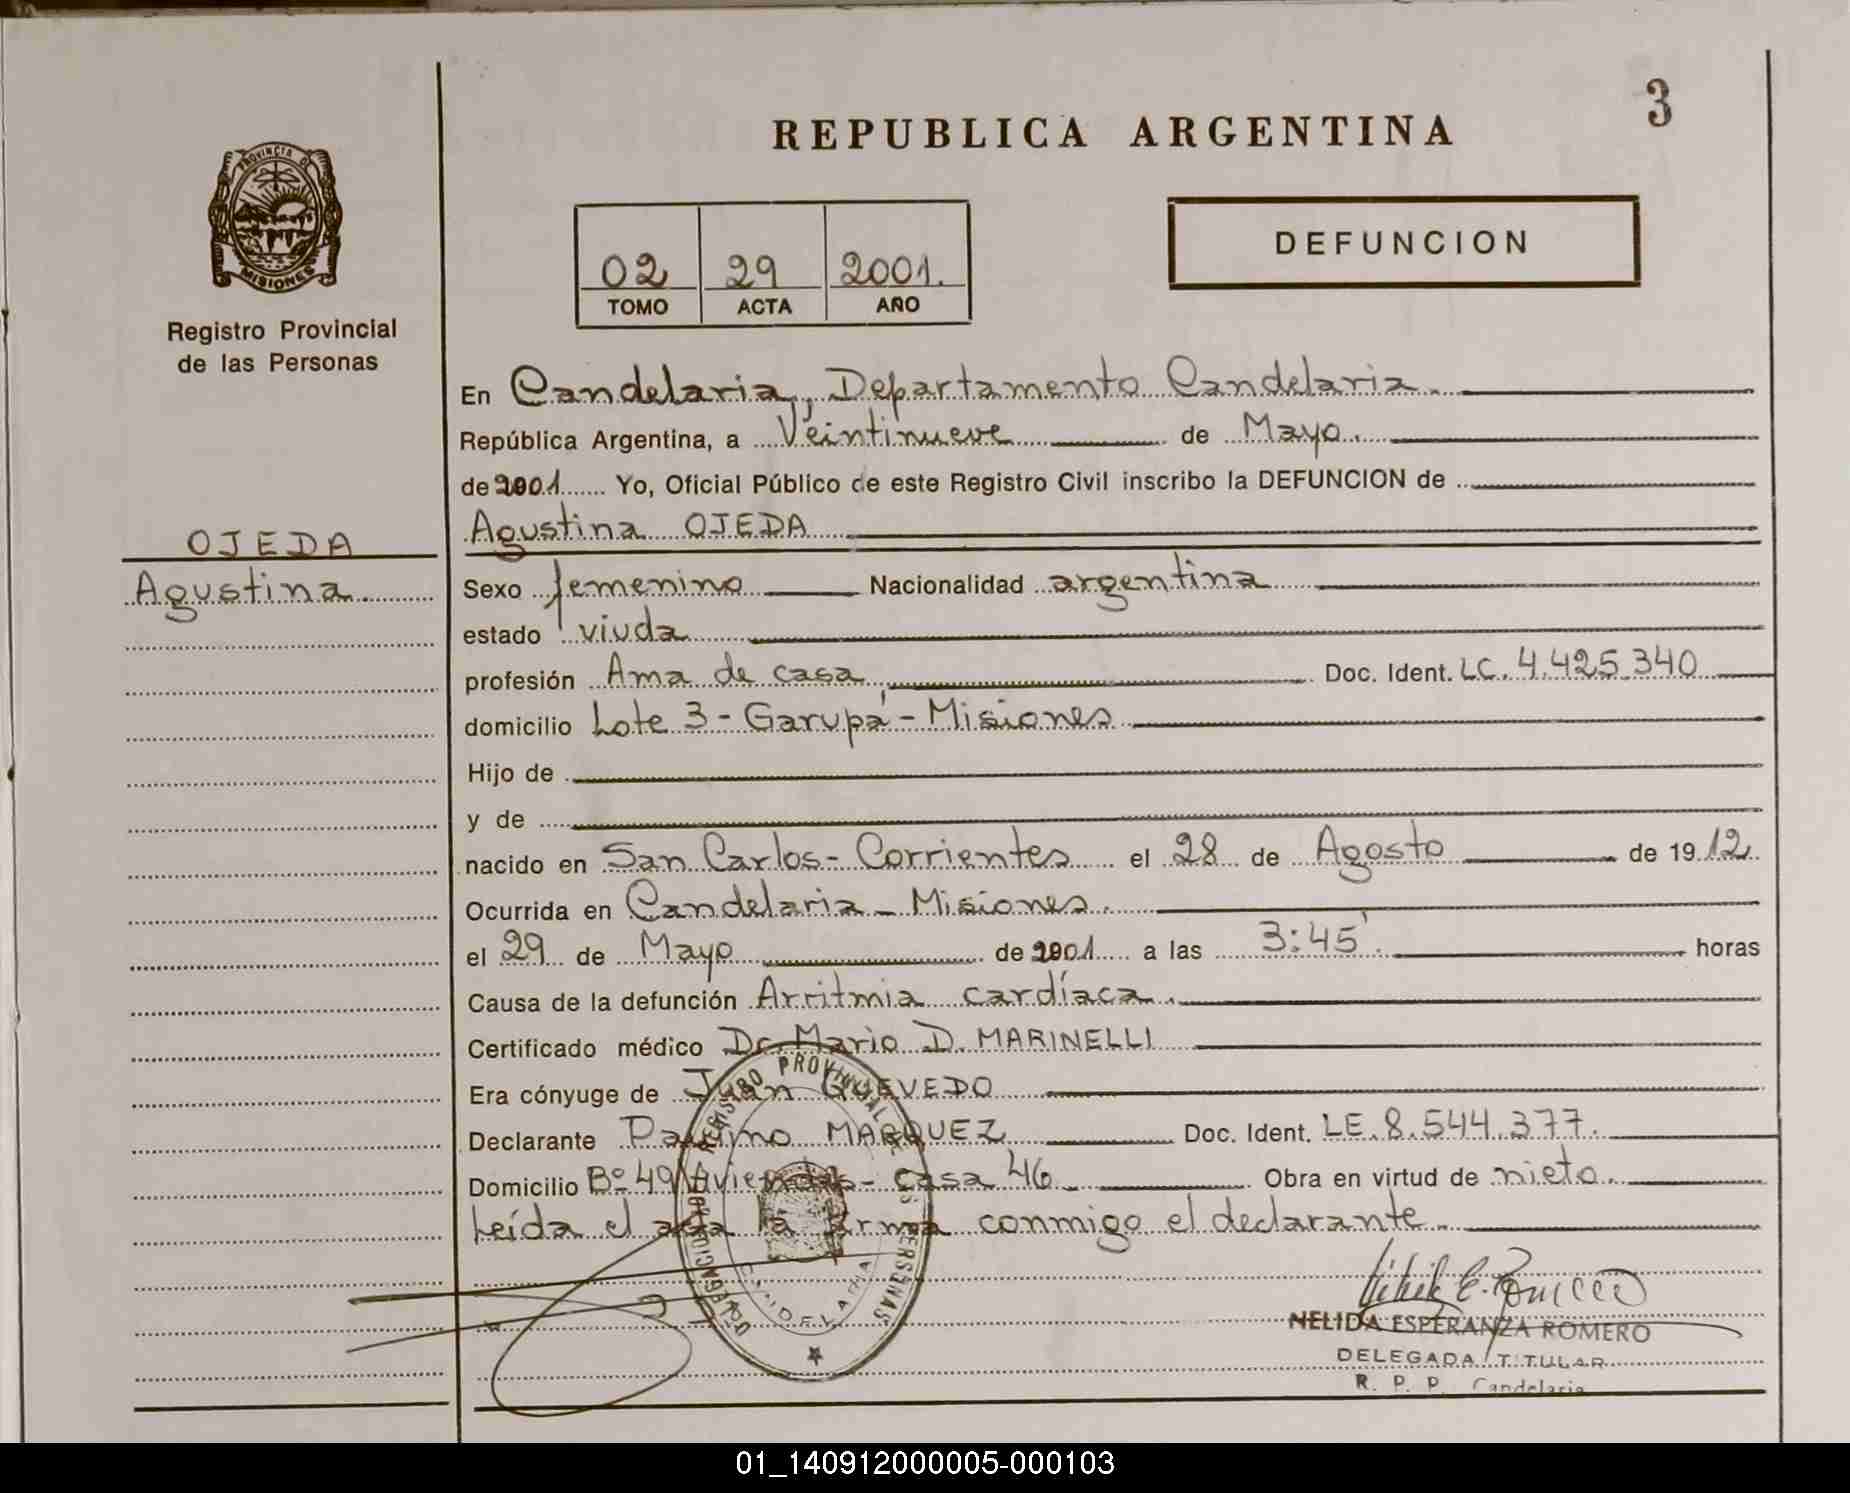 3
REPUBLICA ARGENTINA
PROVINCIA DE
MISIONES
Registro Provincial
de las Personas
02 29 2001.
TOMO ACTA AÑO
DEFUNCION
En Candelaria, Departamento Candelaria.
República Argentina, a Veintinueve de Mayo.
de 2001 Yo, Oficial Público de este Registro Civil inscribo la DEFUNCION de
Agustina OJEDA
OJEDA
Agustina.
Sexo femenino Nacionalidad argentina
estado viuda
profesión Ama de casa Doc. Ident. LC. 4.425.340
domicilio Lote 3 - Garupá - Misiones
Hijo de
y de
nacido en San Carlos - Corrientes el 28 de Agosto de 1912
Ocurrida en Candelaria - Misiones.
el 29 de Mayo de 2001 a las 3:45'. horas
Causa de la defunción Arritmia cardíaca.
Certificado médico Dr. Mario D. MARINELLI
Era cónyuge de Juan QUEVEDO
Declarante MARQUEZ Doc. Ident. LE. 8.544.377.
Domicilio Bº 49 Viviendas - Casa 46 Obra en virtud de nieto.
Leída el acta la firma conmigo el declarante.
REGISTRO PROVINCIAL DE LAS PERSONAS
DELEGACION
CANDELARIA
NELIDA ESPERANZA ROMERO
DELEGADA TITULAR
R. P. P. Candelaria
01_140912000005-000103